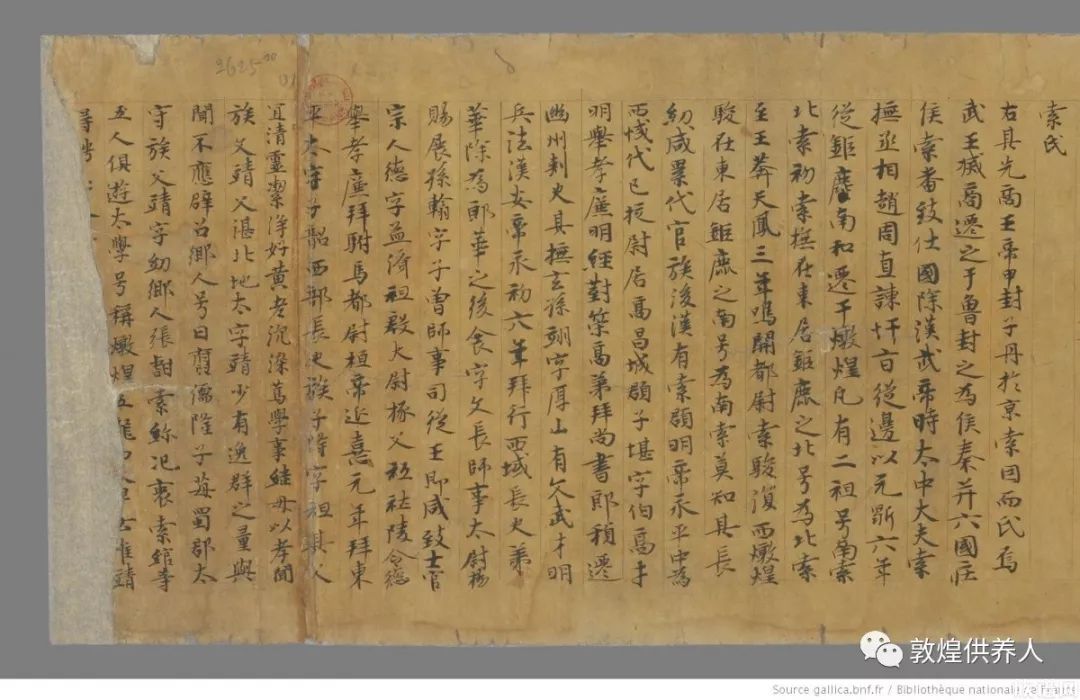 索氏
右其先商王帝甲封子丹於京索因而氏焉
武王滅商遷之于魯封之為侯秦并六國庄
侯索番致仕國除漢武帝時太中大夫索
撫丞相趙周直諫忤旨從邊以元鼎六年
從鉅鹿南和遷于燉煌凡有二祖号南索
北索初索撫在東居鉅鹿之北号為北索
至王莽天鳳三年鳴開都尉索駿復西燉煌
駿在東居鉅鹿之南号為南索莫知其長
幼咸累代官族後漢有索頵明帝永平中為
西域代己挍尉居高昌城頵子堪字伯高才
明舉孝廉明經對策高第拜尚書郎稍遷
幽州刺史其撫玄孫翊字厚山有文武才明
兵法漢安帝永初六年拜行西域長史弟
華除為郎華之後食字文長師事太尉楊
賜展孫翰字子曾師事司徒王朗咸致士官
宗人德字益濟祖殷大尉掾父祛陵令德
舉孝廉拜駙馬都尉桓帝延熹元年拜東
平太守子韶西部長史族子隆字祖其人
宜清靈潔淨好黃老沉深篤學事継母以孝聞
族父靖父湛北地太守靖少有逸群之量與
聞不應辟召鄉人号曰儒隆子苺蜀郡太
守族父靖字幼鄉人張甝索紾氾衷索綰等
五人俱遊太學号稱燉煌五龍四人早亡唯靖
2625
敦煌供养人
Source gallica.bnf.fr / Bibliothèque nationale de Fran